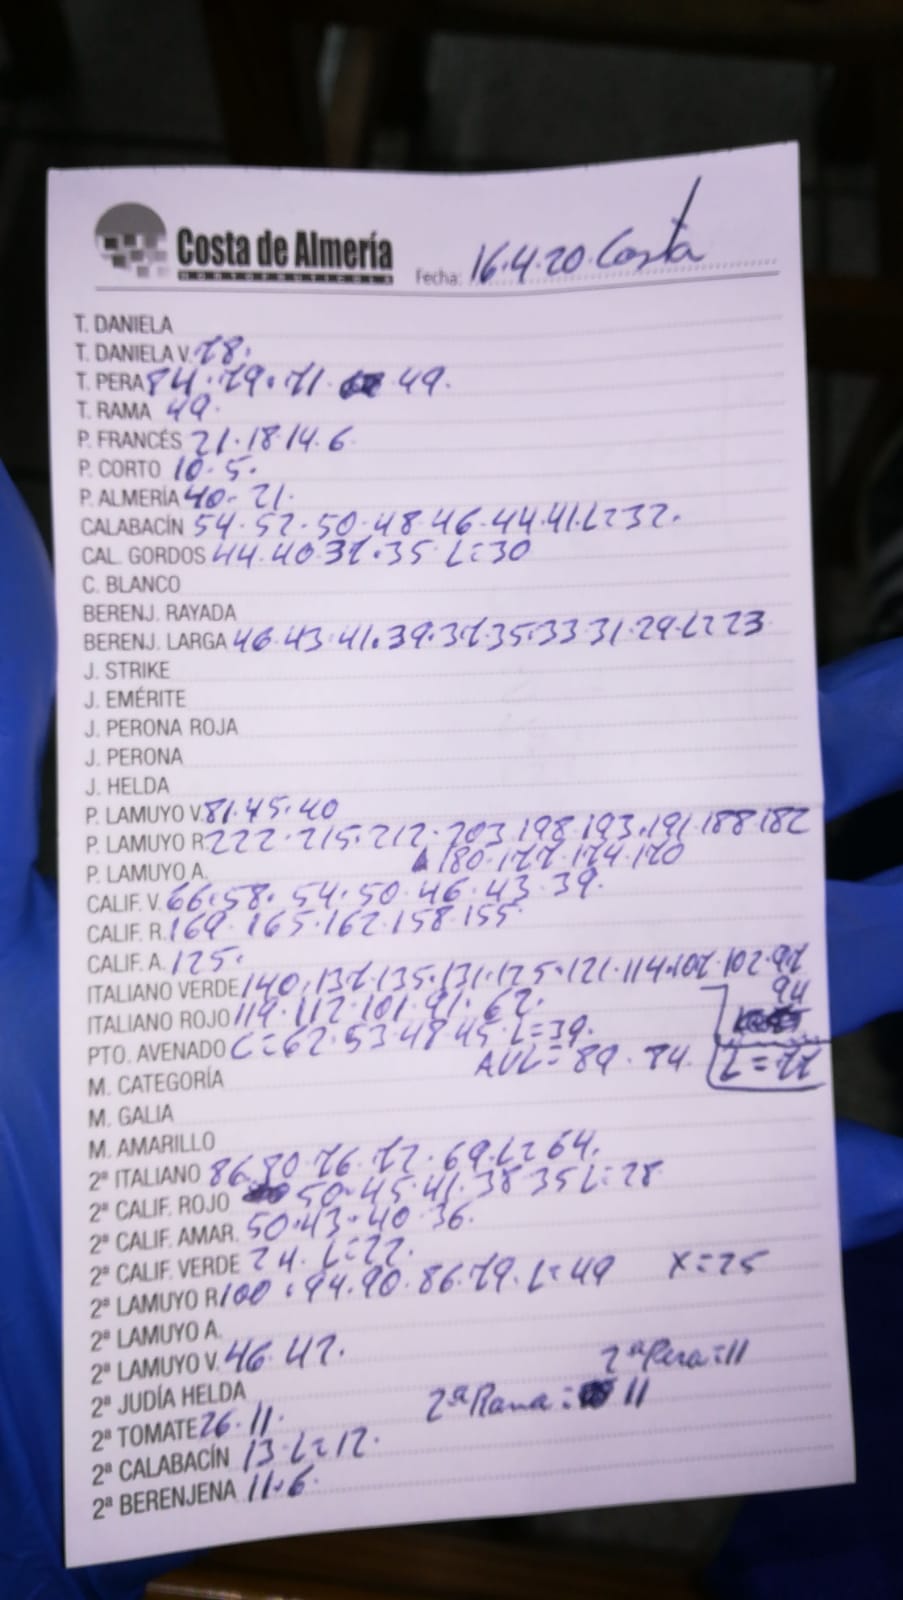 Costa de Almería
HORTOFRUTÍCOLA
Fecha: 16.4.20 Costa
T. DANIELA
T. DANIELA V. 78.
T. PERA 84.79.71. 49.
T. RAMA 49.
P. FRANCÉS 21.18.14.6
P. CORTO 10.5.
P. ALMERÍA 40.21.
CALABACÍN 54.52.50.48.46.44.41.L=32.
CAL. GORDOS 44.40.37.35 L=30
C. BLANCO
BERENJ. RAYADA
BERENJ. LARGA 46.43.41.39.37.35.33.31.29.L=23
J. STRIKE
J. EMÉRITE
J. PERONA ROJA
J. PERONA
J. HELDA
P. LAMUYO V. 81.45.40
P. LAMUYO R. 222.215.212.203.198.193.191.188.182
180.177.174.170
P. LAMUYO A.
CALIF. V. 66.58.54.50.46.43.39.
CALIF. R. 169.165.162.158.155.
CALIF. A. 125.
ITALIANO VERDE 140.137.135.131.125.121.114.107.102.97
94
ITALIANO ROJO 119.112.101.91.62.
PTO. AVENADO C=62.53.48.45.L=39.
AVL=89.84. L=77
M. CATEGORÍA
M. GALIA
M. AMARILLO
2ª ITALIANO 86.80.76.72.69.L=64.
2ª CALIF. ROJO 50.45.41.38.35 L=28
2ª CALIF. AMAR. 50.43.40.36.
2ª CALIF. VERDE 24.L=22.
2ª LAMUYO R. 100.94.90.86.79.L=49 X=25
2ª LAMUYO A.
2ª LAMUYO V. 46.42.
2ª Pera=11
2ª JUDÍA HELDA
2ª Rama= 11
2ª TOMATE 26.11.
2ª CALABACÍN 13.L=12.
2ª BERENJENA 11.6.